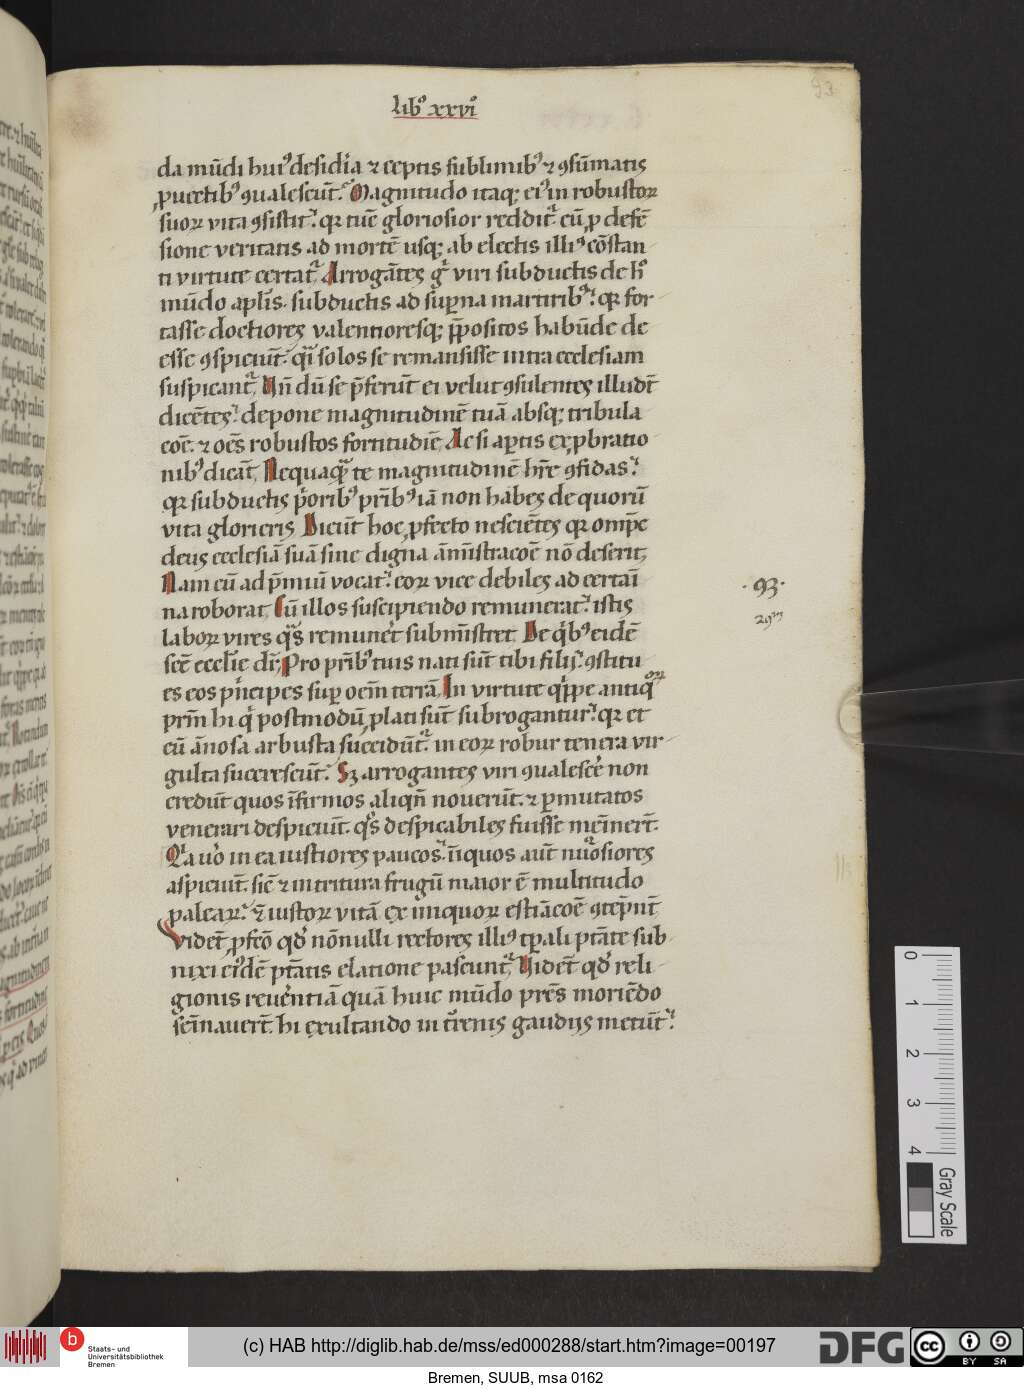 libꝰ xxvıꝰ
93
da mūdi huiꝰ desidia ⁊ ceptis sublimibꝰ ⁊ ꝯsūmatis
ꝓuectibꝰ ꝯualescūt. Magnitudo itaqꝫ eiꝰ in robustoꝝ
suoꝝ vita ꝯsistit. qꝛ tūc gloriosior reddit᷑ cū ꝓ defē
sione veritatis ad mortē usqꝫ ab electis illiꝰ cōstan
ti virtute certat᷑. Arrogātes gͦ viri subductis de hͦ
mūdo apl̄is. subductis ad suꝑna martiribꝰ. qꝛ for
tasse doctiores valentioresqꝫ p̄positos habūde de
esse ꝯspiciūt. qͣi solos se remansisse intra ecclesiam
suspicant᷑. Un̄ dū se p̄ferūt ei velut ꝯsulentes illudt̄
dicētes. depone magnitudinē tuā absqꝫ tribula
coē. ⁊ oēs robustos fortitudīe. Ac si aꝑtis exꝓbratio
nibꝰ dicāt. Nequaqͣꝫ te magnitudinē hr̄e ꝯfidas.
qꝛ subductis pͥoribꝰ pr̄ibꝰ iā non habes de quorū
vita glorieris. Dicūt hoc ꝓfecto nesciētes qꝛ omp̄c
deus ecclesiā suā sine digna āmīstracoē nō deserit,
Nam cū ad p̄miū vocat. eoꝝ vice debiles ad certaī
na roborat. Cū illos suscipiendo remunerat. istis
· 93 ·
laboꝝ vires qͣs remunēt submīstret. De qͥbꝰ eidē
scē ecclīe dr̄, Pro pr̄ibꝰ tuis nati sūt tibi filij. ꝯstitu
es eos pͥncipes suꝑ oēm terrā. In virtute qͥppe antiqͦꝝ
prm̄ hi qͥ postmodū ꝓlati sūt subrogantur. qꝛ et
cū ānosa arbusta succidūt᷑. in eoꝝ robur tenera vir
gulta succrescūt. Sꝫ arrogantes viri ꝯualescē non
credūt quos īfirmos aliqn̄ nouerūt. ⁊ ꝑmutatos
venerari despiciūt. qͣs despicabiles fuisse memīnert̄.
Qͥa uͦo in ea iustiores paucos. īiquos aut̄ nūosiores
aspiciūt. sic̄ ⁊ in tritura frugū maior ē multitudo
paleaꝝ. ⁊ iustoꝝ vitā ex iniquoꝝ estīacoē ꝯtep̄nt̄
Videt̄ ꝓfcō qd̓ nōnulli rectores illiꝰ tꝑali ptāte sub
nixi eiꝰdē ptātis elatione pascunt᷑. Videt̄ qd̓ reli
gionis reuēntiā quā huic mūdo pr̄es moriēdo
semīauert̄. hi exultando in tr̄enis gaudijs metūt.
0
1
2
3
4
Gray Scale
b
Staats- und
Universitätsbibliothek
Bremen
(c) HAB http://diglib.hab.de/mss/ed000288/start.htm?image=00197
DFG
cc
BY SA
Bremen, SUUB, msa 0162